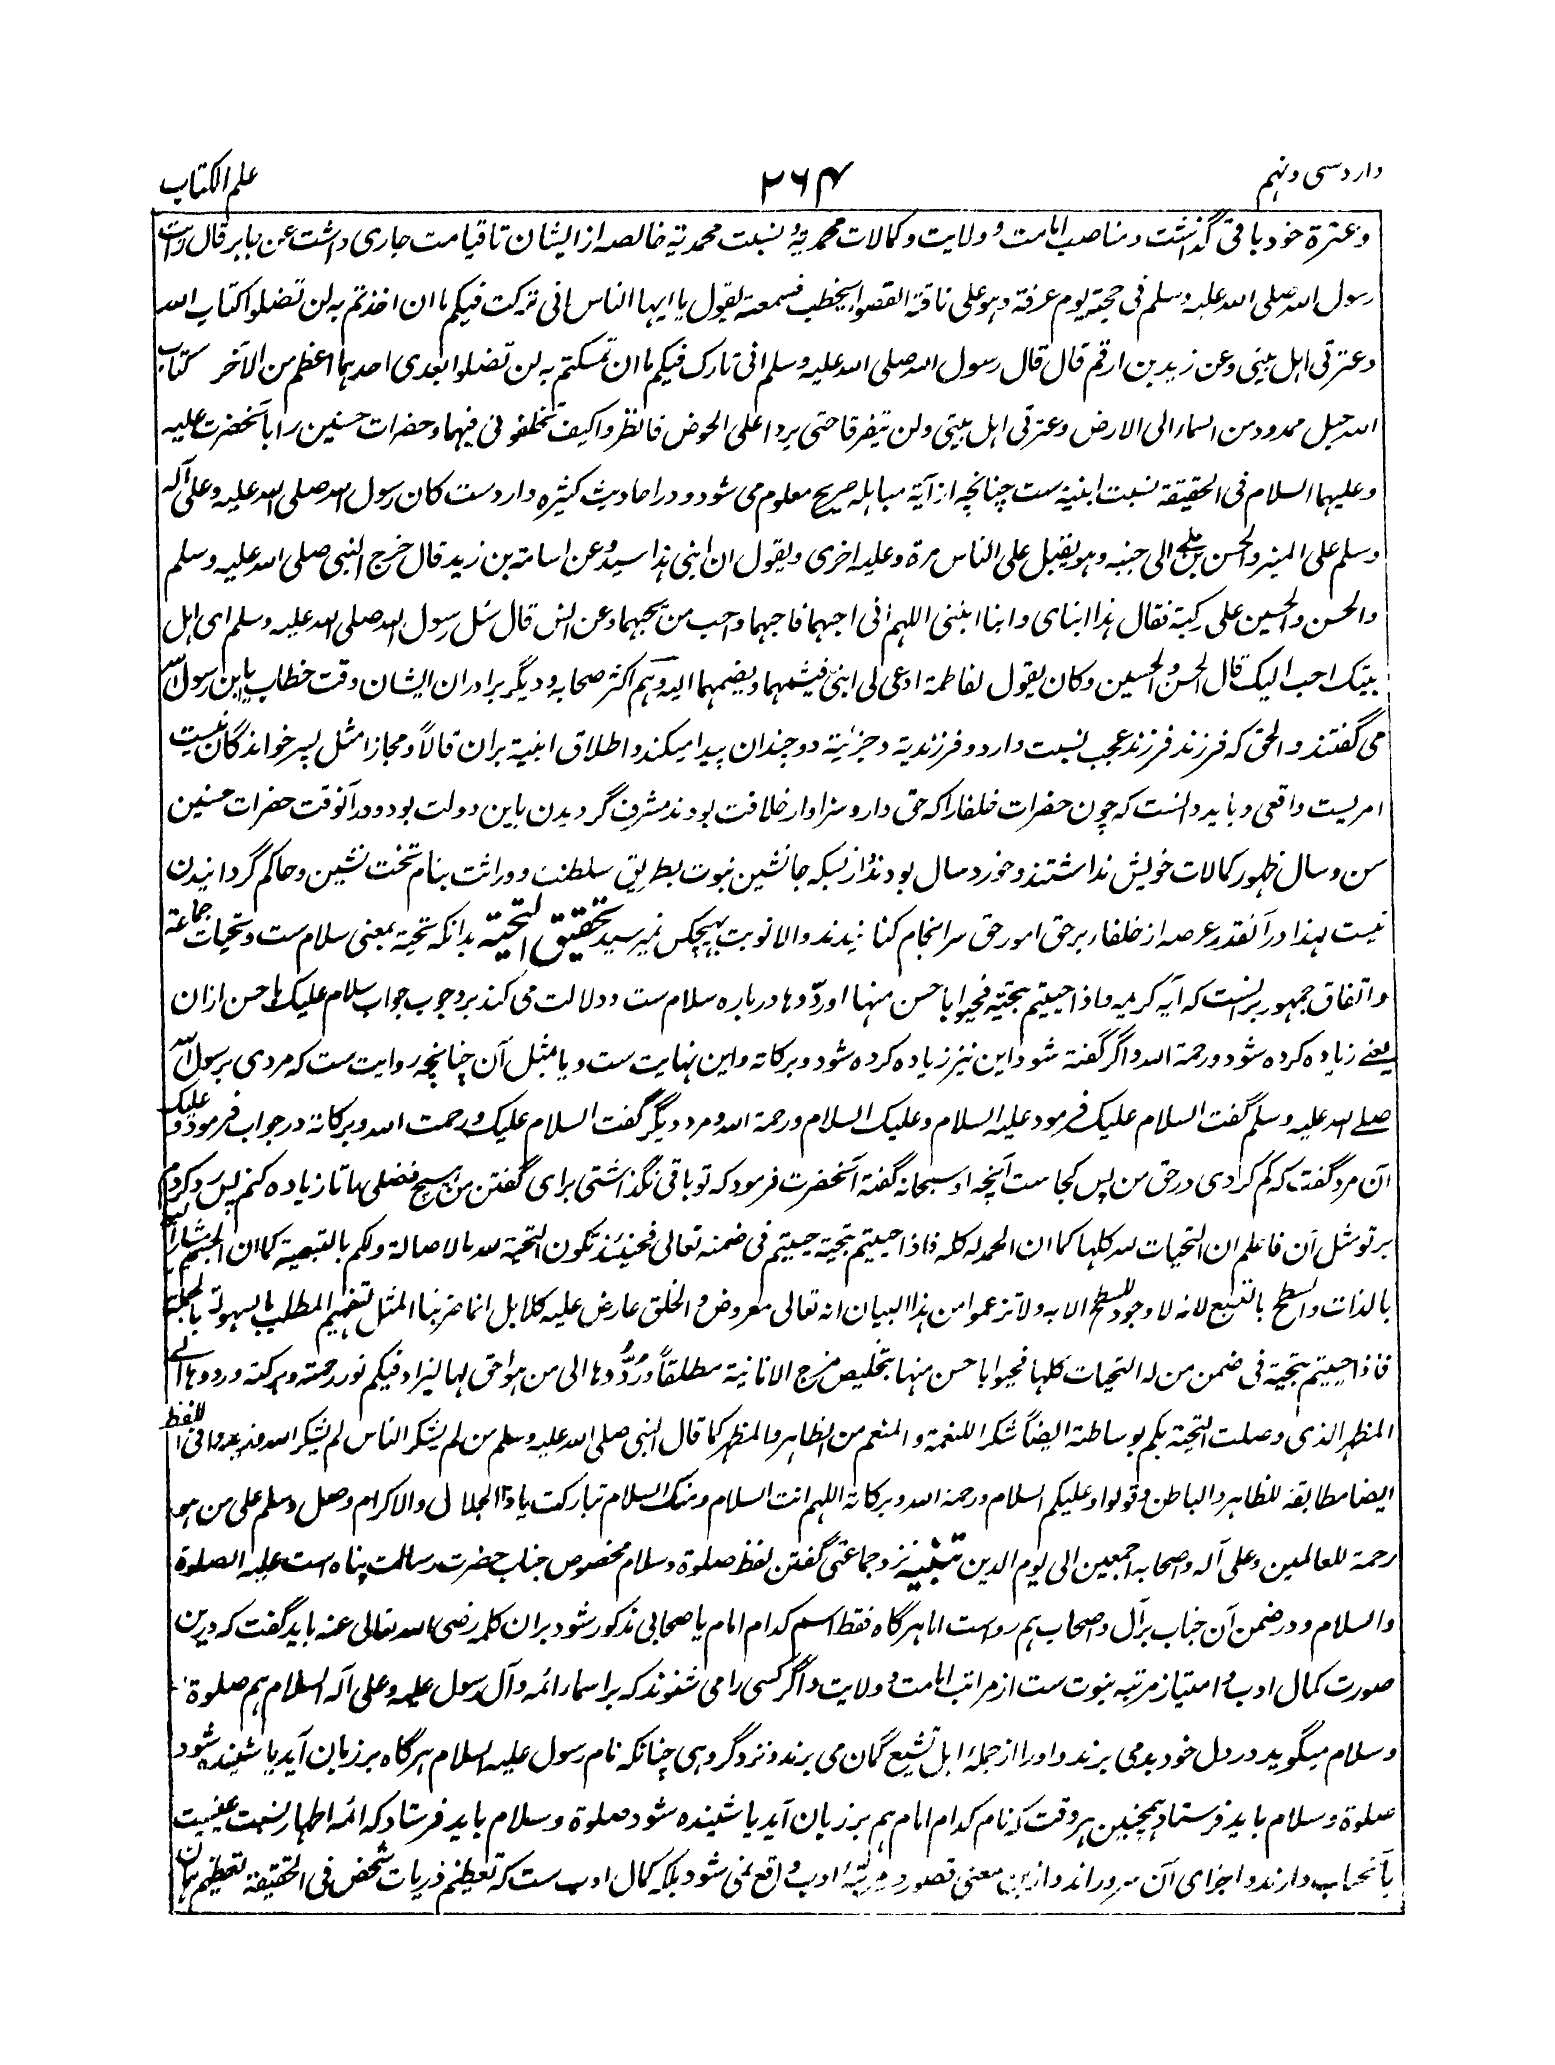 وارد سی و نهم
۲۶۴
علم الکتاب
و عترة خود باقی گذاشت و مناصب امامت و ولایت و کمالات محمدیه و نسبت محمدیه خالصه از ایشان تا قیامت جاری داشت عن جابر قال رایت
رسول الله صلی الله علیه وسلم فی حجته یوم عرفة وهو علی ناقة القصواء یخطب فسمعته یقول یا ایها الناس انی ترکت فیکم ما ان اخذتم به لن تضلوا کتاب الله
وعترتی اهل بیتی وعن زید بن ارقم قال قال رسول الله صلی الله علیه وسلم انی تارک فیکم ما ان تمسکتم به لن تضلوا بعدی احدهما اعظم من الآخر کتاب
الله حبل ممدود من السماء الی الارض وعترتی اهل بیتی ولن یتفرقا حتی یردا علی الحوض فانظروا کیف تخلفونی فیهما وحضرات حسنین را با آنحضرت علیه
وعلیهما السلام فی الحقیقة نسبت ابنیة ست چنانچه از آیة مباهله صریح معلوم می شود و در احادیث کثیره وارد ست کان رسول الله صلی الله علیه وعلی آله
وسلم علی المنبر والحسن بن علی الی جنبه وهو یقبل علی الناس مرة وعلیه اخری ویقول ان ابنی هذا سید وعن اسامة بن زید قال خرج النبی صلی الله علیه وسلم
والحسن والحسین علی رکبته فقال هذا ابنای وابنا ابنتی اللهم انی احبهما فاحبهما واحب من یحبهما وعن انس قال سئل رسول الله صلی الله علیه وسلم ای اهل
بیتک احب الیک قال الحسن والحسین وکان یقول لفاطمة ادعی لی ابنی فیشمهما ویضمهما الیه وهم اکثر صحابه و دیگر برادران ایشان وقت خطاب یا ابن رسول الله
می گفتند و الحق که فرزند فرزند عجب نسبت دارد و فرزندیة و جزئیة دو چندان پیدا میکند و اطلاق ابنیة بران قالاً و مجازا مثل پسر خواندگان نیست
امریست واقعی و باید دانست که چون حضرات خلفا را که حق دار و سزاوار خلافت بودند مشرف گردیدن باین دولت بود و در آنوقت حضرات حسنین
سن و سال ظهور کمالات خویش نداشتند و خورد سال بودند از بسکه جانشین نبوت بطریق سلطنت و وراثت بنام تخت نشین و حاکم گردانیدن
نیست لهذا در آنقدر عرصه از خلفاء برحق امور حق سرانجام کنانیدند والا نوبت بهیچکس نمیرسید تحقیق التحیة بدانکه تحیة بمعنی سلام ست و تحیات جماعة
و اتفاق جمهور برانست که آیه کریمه واذا حییتم بتحیة فحیوا باحسن منها اوردوها درباره سلام ست و دلالت می کند بر وجوب جواب سلام علیک باحسن ازان
یعنی زیاده کرده شود ورحمة الله و اگر گفته شود این نیز زیاده کرده شود وبرکاته و این نهایت ست و یا مثل آن چنانچه روایت ست که مردی بر رسول الله
صلی الله علیه وسلم گفت السلام علیک فرمود علیه السلام وعلیک السلام ورحمة الله و مرد دیگر گفت السلام علیک ورحمت الله وبرکاته در جواب فرمود وعلیک
آن مرد گفت که کم کردی در حق من پس کجاست آنچه او سبحانه گفته آنحضرت فرمود که تو باقی نگذاشتی برای گفتن من هیچ فضلی ها تا زیاده کنم پس رد کردم
بر تو مثل آن فاعلم ان التحیات لله کلها کما ان الحمد له کله فاذا حییتم بتحیة حییتم فی ضمنه تعالی فحینئذ تکون التحیة لله بالاصالة ولکم بالتبعیة کما ان الجسم مشار الیه
بالذات والسطح بالتبع لانه لا وجود للسطح الا به ولا تزعموا من هذا البیان انه تعالی معروض والخلق عارض علیه کلا بل انما ضربنا المثل لتفهیم المطلب بالسهولة بالجملة
فاذا حییتم بتحیة فی ضمن من له التحیات کلها فحیوا باحسن منها بتخلیص مزج الانانیة مطلقاً وردُّوها الی من هو احق بها لیزاد فیکم نور رحمته وبرکته وردوها الی
المظهر الذی وصلت التحیة بکم بوساطته ایضاً شکرا للنعمة والمنعم من الظاهر والمظهر کما قال النبی صلی الله علیه وسلم من لم یشکر الناس لم یشکر الله فی اللفظ
ایضا مطابقة للظاهر والباطن وقولوا وعلیکم السلام ورحمة الله وبرکاته اللهم انت السلام ومنک السلام تبارکت یا ذا الجلال والاکرام وصل وسلم علی من هو
رحمة للعالمین وعلی آله واصحابه اجمعین الی یوم الدین تنبیه نزد جماعتی گفتن لفظ صلوة و سلام مخصوص جناب حضرت رسالت پناه است علیه الصلوة
والسلام و در ضمن آن جناب بر آل و اصحاب هم رواست اما هرگاه فقط اسم کدام امام یا صحابی مذکور شود بران کلمه رضی الله تعالی عنه باید گفت که درین
صورت کمال ادب و امتیاز مرتبه نبوت ست از مراتب امامت و ولایت و اگر کسی را می شنوند که بر اسماء ائمه و آل رسول علیه وعلی آله السلام هم صلوة
و سلام میگوید در دل خود بد می برند و او را از جمله اهل تشیع گمان می برند و نزد گروهی چنانکه نام رسول علیه السلام هرگاه بر زبان آید یا شنیده شود
صلوة و سلام باید فرستاد همچنین هر وقت که نام کدام امام هم بر زبان آید یا شنیده شود صلوة و سلام باید فرستاد که ائمه اطهار نسبت عینیت
بآنجناب دارند و اجزای آن سرور اند و ازین معنی قصور در رتبهٔ ادب واقع نمی شود بلکه کمال ادب ست که تعظیم ذریات شخص فی الحقیقة تعظیم همان